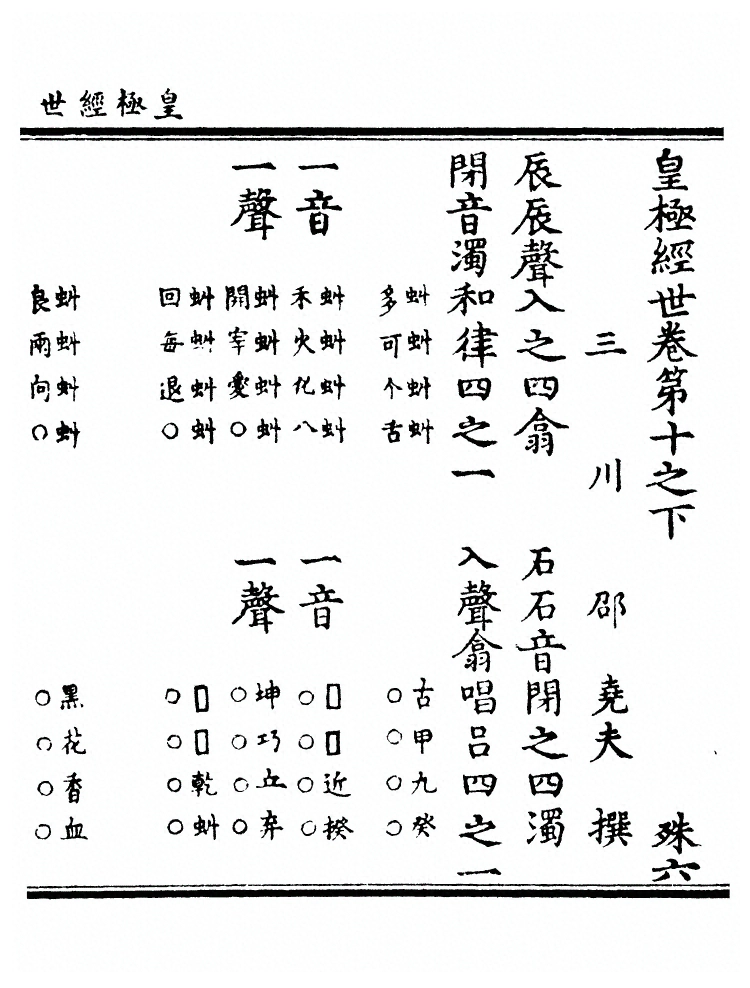 皇極經世
皇極經世卷第十之下 殊六
三川 邵堯夫撰
辰辰聲入之四翕 石石音閉之四濁
閉音濁和律四之一 入聲翕唱呂四之一
蚪蚪蚪蚪 古甲九癸
多可个舌 ○○○○
一音 一音
蚪蚪蚪蚪 □□近揆
禾火化八 ○○○○
一聲 一聲
蚪蚪蚪蚪 坤巧丘弃
開宰愛○ ○○○○
蚪蚪蚪蚪 □□乾蚪
回每退○ ○○○○
蚪蚪蚪蚪 黑花香血
良兩向○ ○○○○